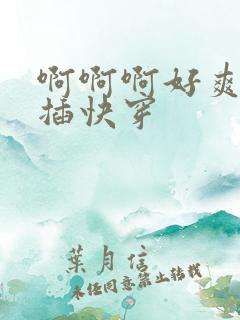 啊啊啊好爽
插快穿
葉月信
未经同意禁止转载